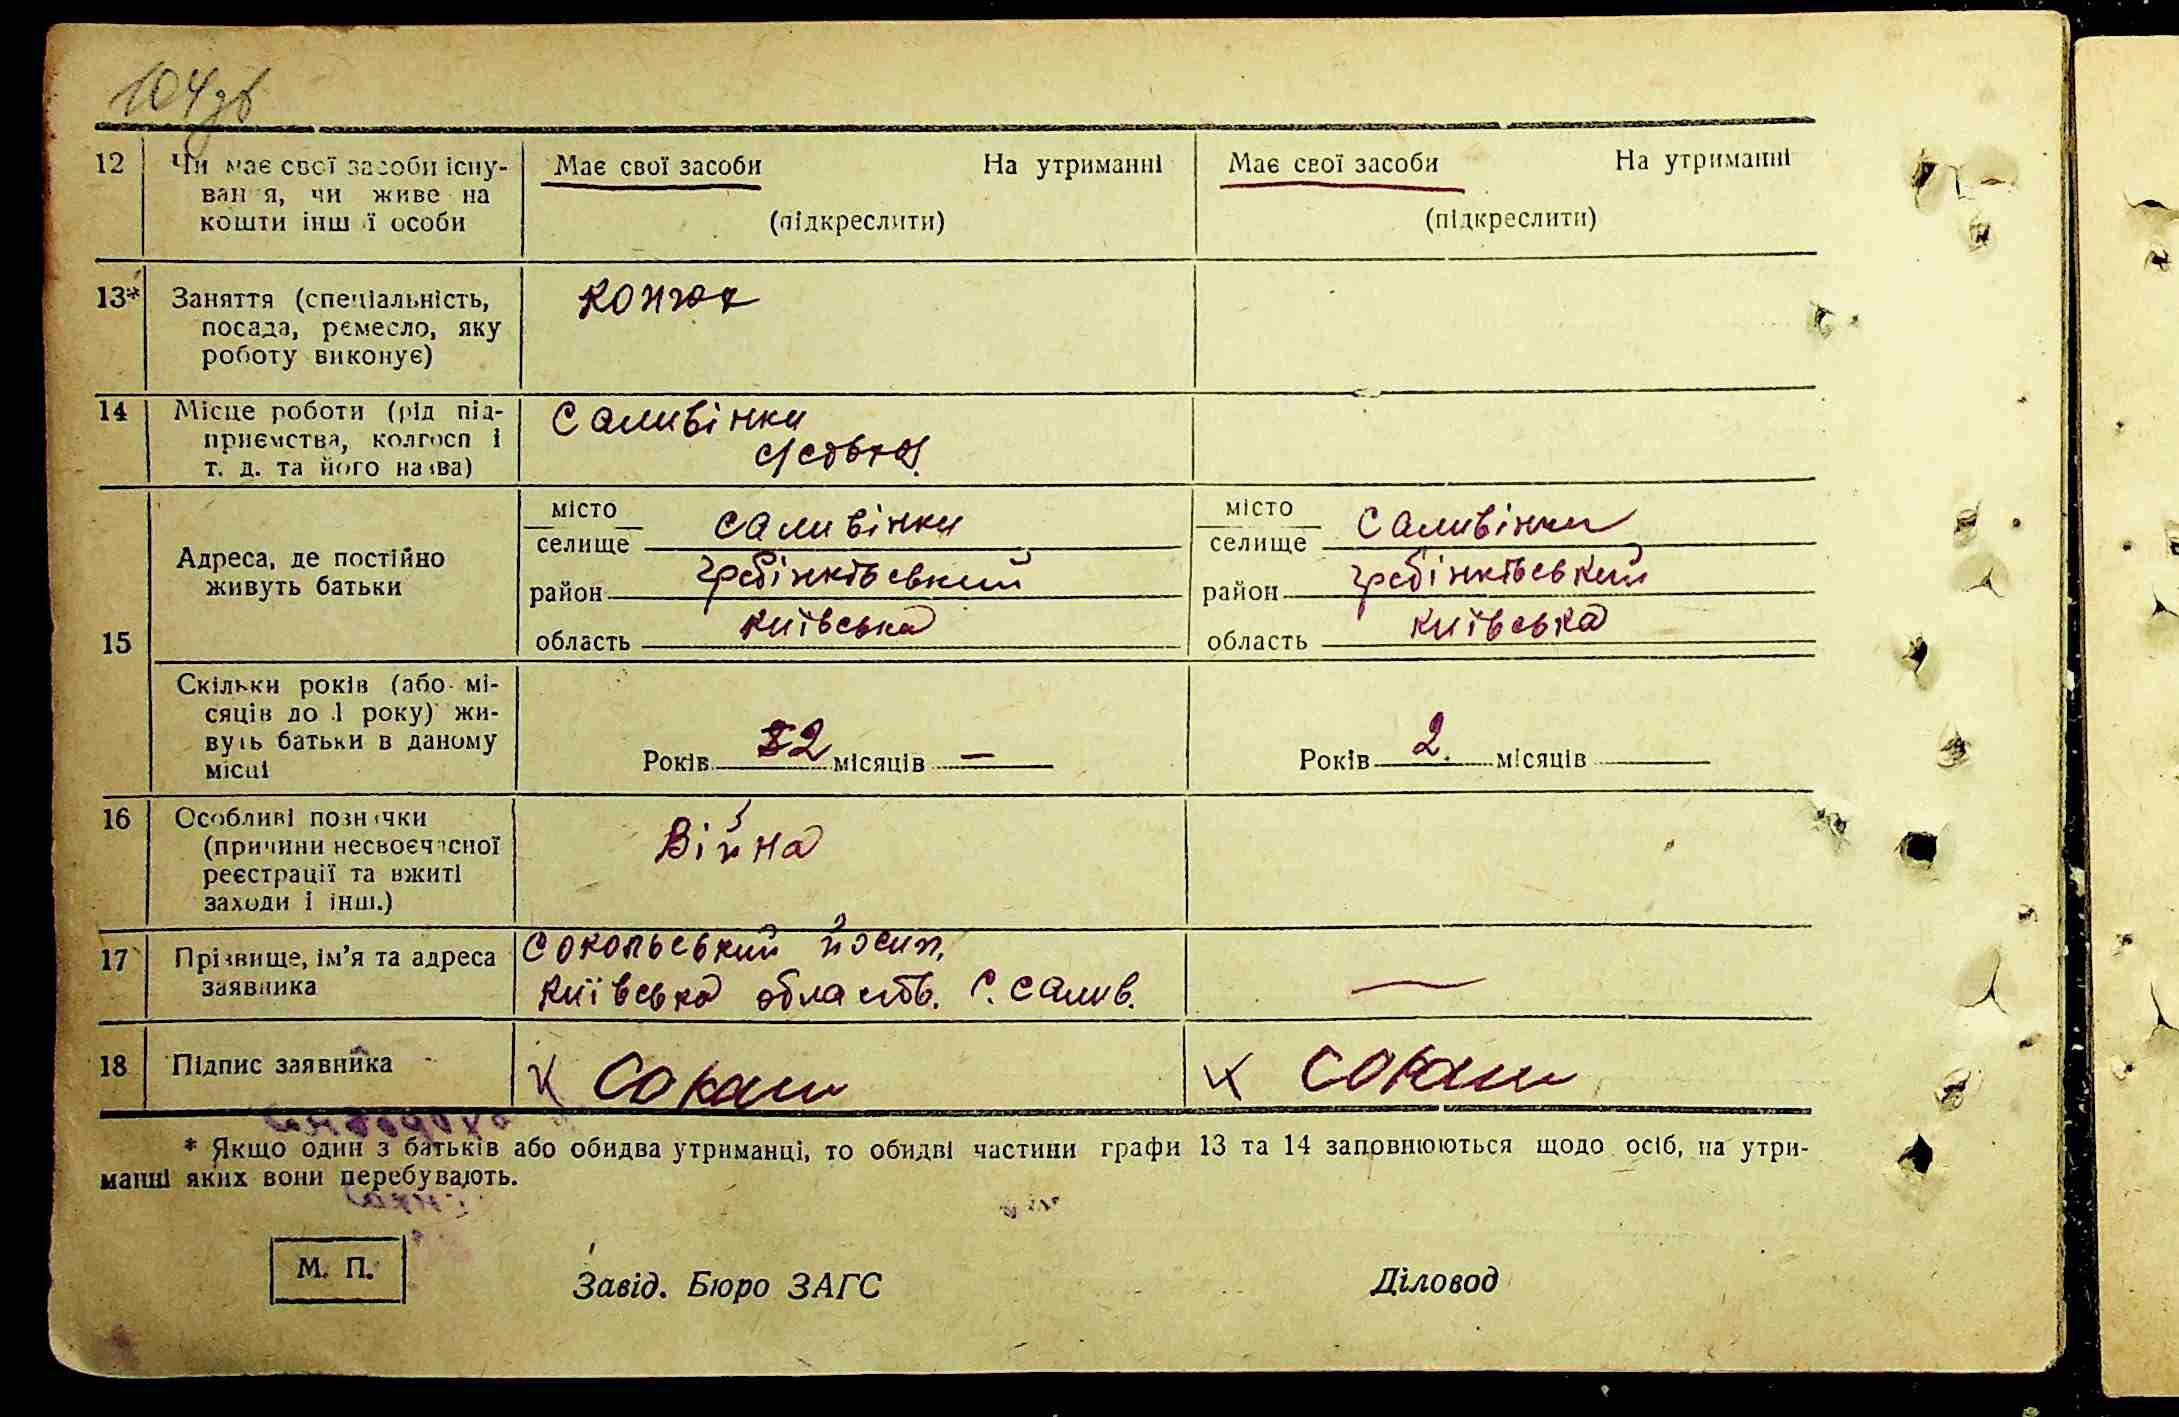 104зв
12 Чи має свої засоби існу- Має свої засоби На утриманні Має свої засоби На утриманні
вання, чи живе на
кошти інш ї особи (підкреслити) (підкреслити)
13* Заняття (спеціальність, конюх
посада, ремесло, яку
роботу виконує)
14 Місце роботи (рід під- Саливінки
приємства, колгосп і
т. д. та його назва)
15 Адреса, де постійно живуть батьки
місто селище Саливінки місто селище Саливінки
район Гребінківський район Гребінківський
область Київська область Київська
Скільки років (або мі-
сяців до 1 року) жи-
вуть батьки в даному
місці Років 32 місяців — Років 2. місяців
16 Особливі позначки Війна
(причини несвоєчасної
реєстрації та вжиті
заходи і інш.)
17 Прізвище, ім'я та адреса Сокольський Йосип,
заявника Київська область. С. Салив. —
18 Підпис заявника
* Якщо один з батьків або обидва утриманці, то обидві частини графи 13 та 14 заповнюються щодо осіб, на утри-
манні яких вони перебувають.
М. П. Завід. Бюро ЗАГС Діловод